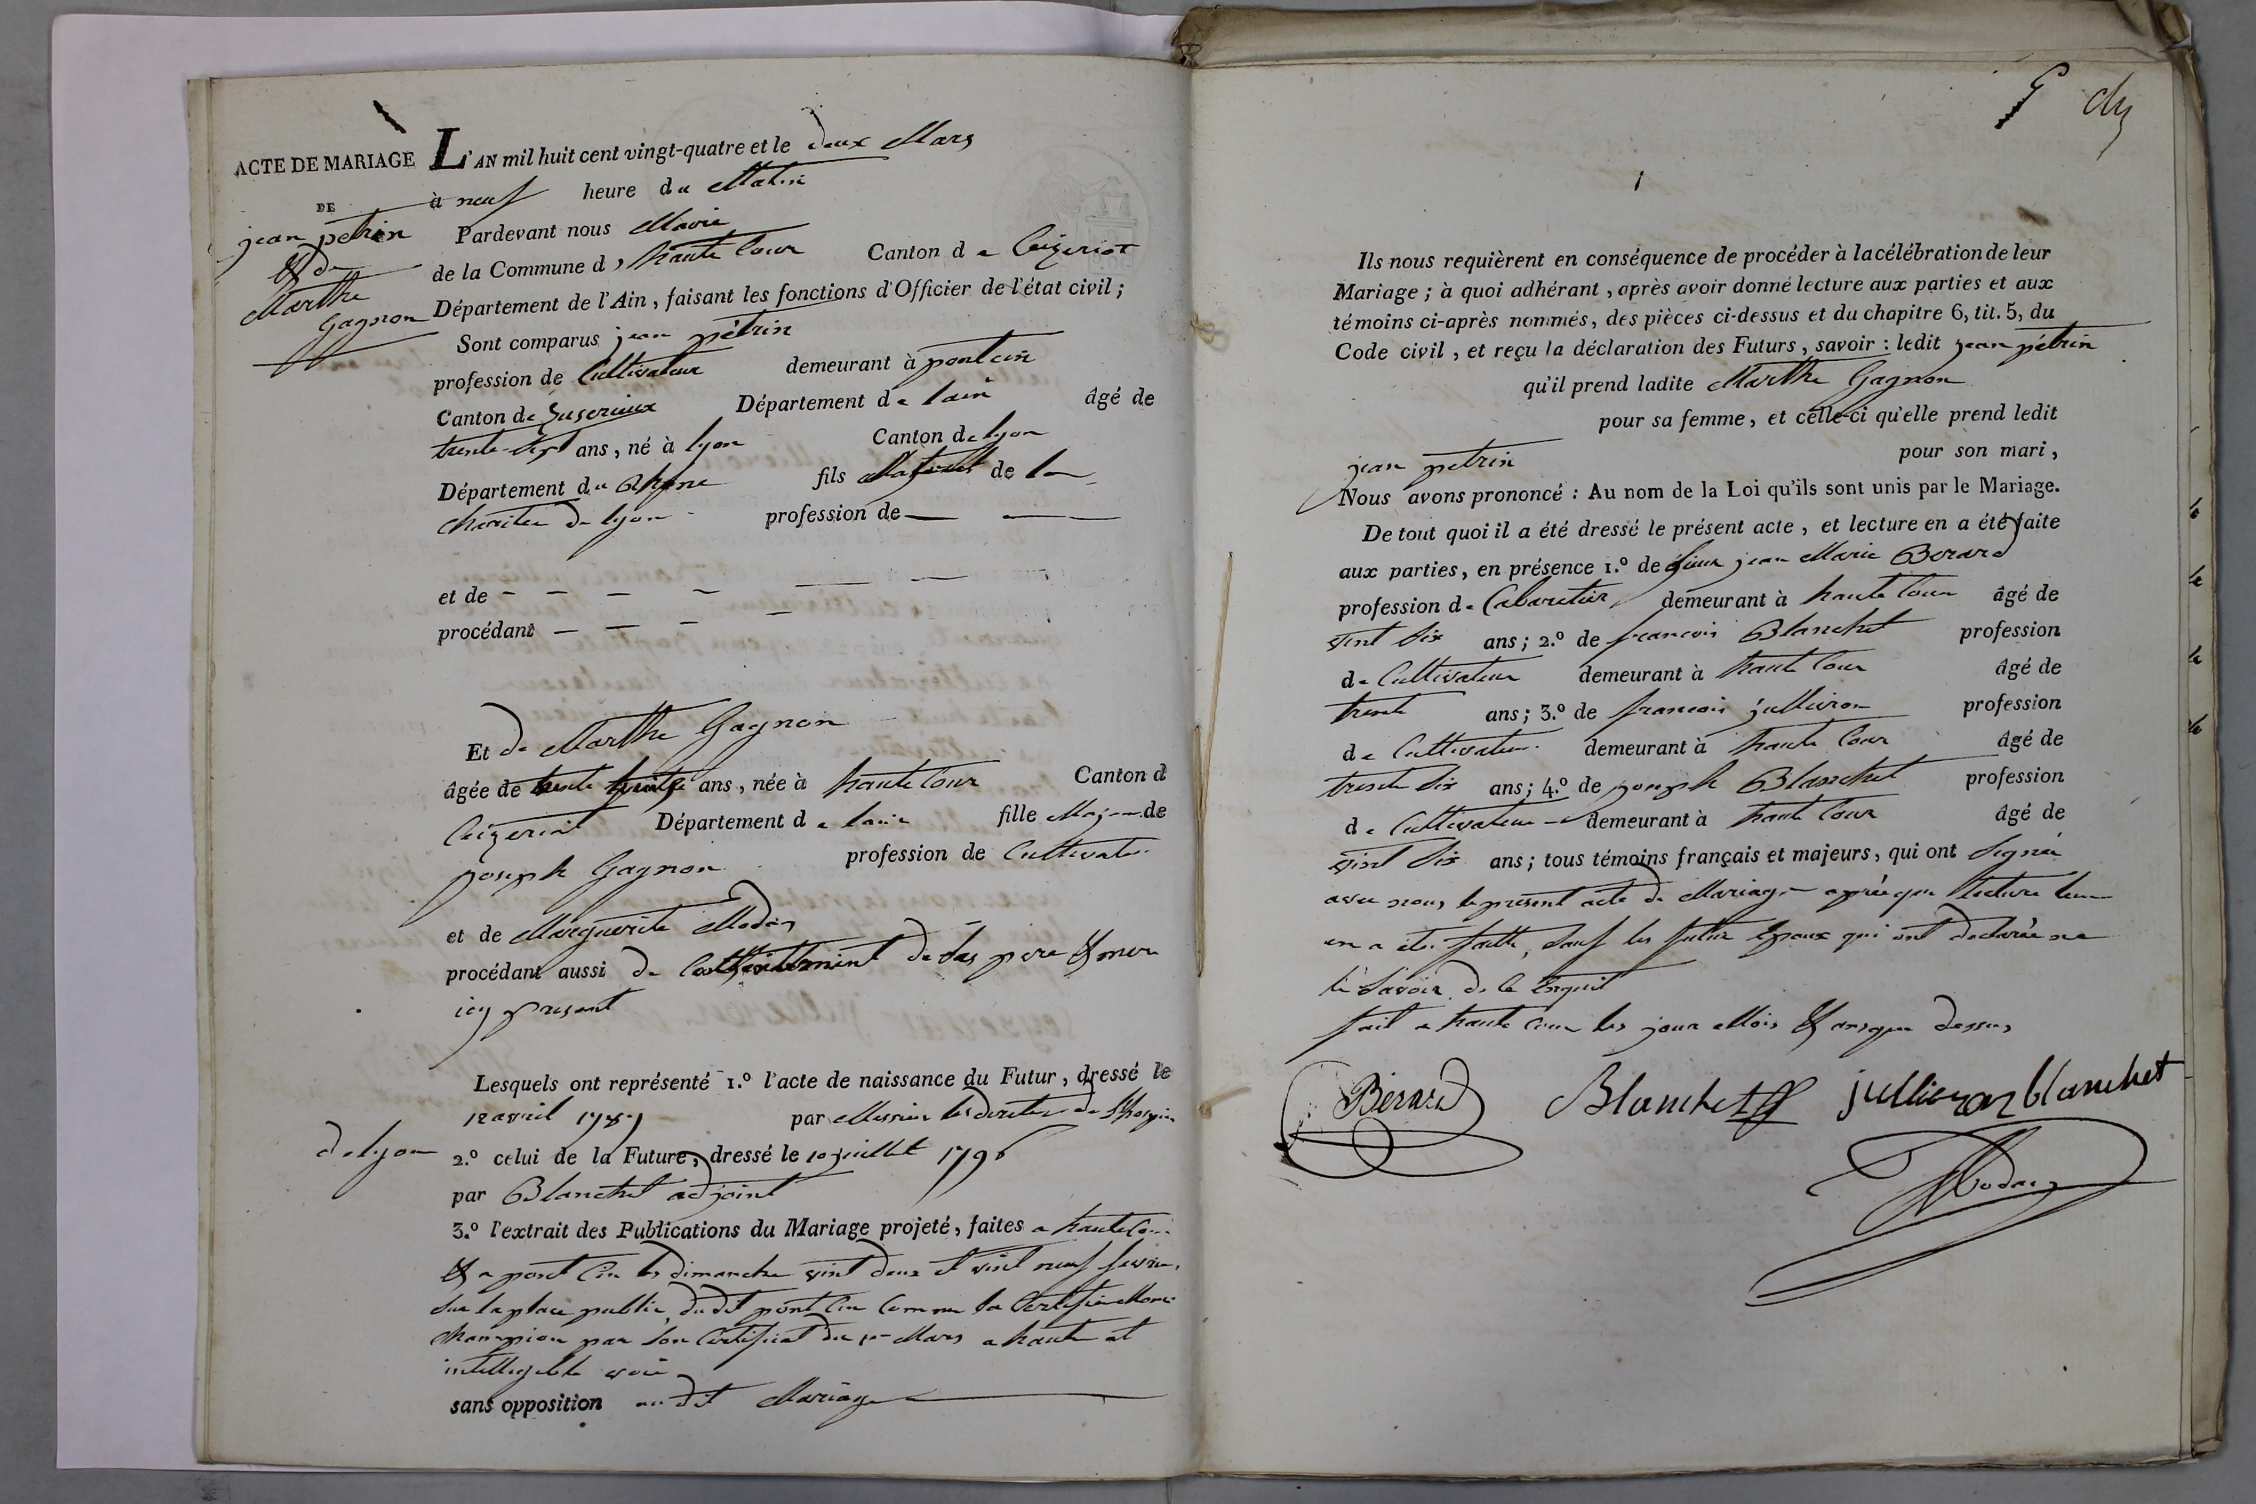 ACTE DE MARIAGE
DE
jean pétrin
& de
Marthe
Gagnon
L'AN mil huit cent vingt-quatre et le deux Mars
à neuf heure du Matin
Pardevant nous Maire
de la Commune d, haute Cour Canton de Ceizeriat
Département de l'Ain, faisant les fonctions d'Officier de l'état civil;
Sont comparus jean pétrin
profession de Cultivateur demeurant à pont cin
Canton de Département de lain âgé de
trente-sept ans, né à lyon Canton de lyon
Département du Rhone fils de la
charitee de lyon profession de
et de
procédant
Et de Marthe Gagnon
âgée de trente ans, née à haute Cour Canton d
Ceizeriat Département de lain fille Majeure de
joseph Gagnon profession de Cultivateur
et de Marguerite Modas
procédant aussi de de ses pere & mere
icy present
Lesquels ont représenté 1.º l'acte de naissance du Futur, dressé le
12 avril 1787 par Messieur les directeur de lhospice
de lyon
2.º celui de la Future, dressé le 10 juillet 1796
par Blanchet adjoint
3.º l'extrait des Publications du Mariage projeté, faites a haute Cour
& a pont Cin les dimanche vint deux et vint neuf fevrier
sur la place public dudit pont Cin Comme la Certifié Mons
champion par son Certificat du 1er Mars a haute et
intellegible voie
sans opposition audit Mariage
Ils nous requièrent en conséquence de procéder à la célébration de leur
Mariage; à quoi adhérant, après avoir donné lecture aux parties et aux
témoins ci-après nommés, des pièces ci-dessus et du chapitre 6, tit. 5, du
Code civil, et reçu la déclaration des Futurs, savoir: ledit jean pétrin
qu'il prend ladite Marthe Gagnon
pour sa femme, et celle-ci qu'elle prend ledit
jean petrin pour son mari,
Nous avons prononcé: Au nom de la Loi qu'ils sont unis par le Mariage.
De tout quoi il a été dressé le présent acte, et lecture en a été faite
aux parties, en présence 1.º de sieur jean Marie Berard
profession de Cabaretier demeurant à haute Cour âgé de
vint six ans; 2.º de francois Blanchet profession
de Cultivateur demeurant à haute Cour âgé de
trente ans; 3.º de francois jullieron profession
de Cultivateur demeurant à haute Cour âgé de
trente six ans; 4.º de joseph Blanchet profession
de Cultivateur demeurant à haute Cour âgé de
vint six ans; tous témoins français et majeurs, qui ont signé
avec nous le present acte de Mariage apréeque lecture leur
en a éte faitte, sauf les futur Epoux qui ont declarée ne
le savoir de ce Enquit
fait a haute Cour les jour Mois & ansque dessus
Berard Blanchet jullieron blanchet
Modas